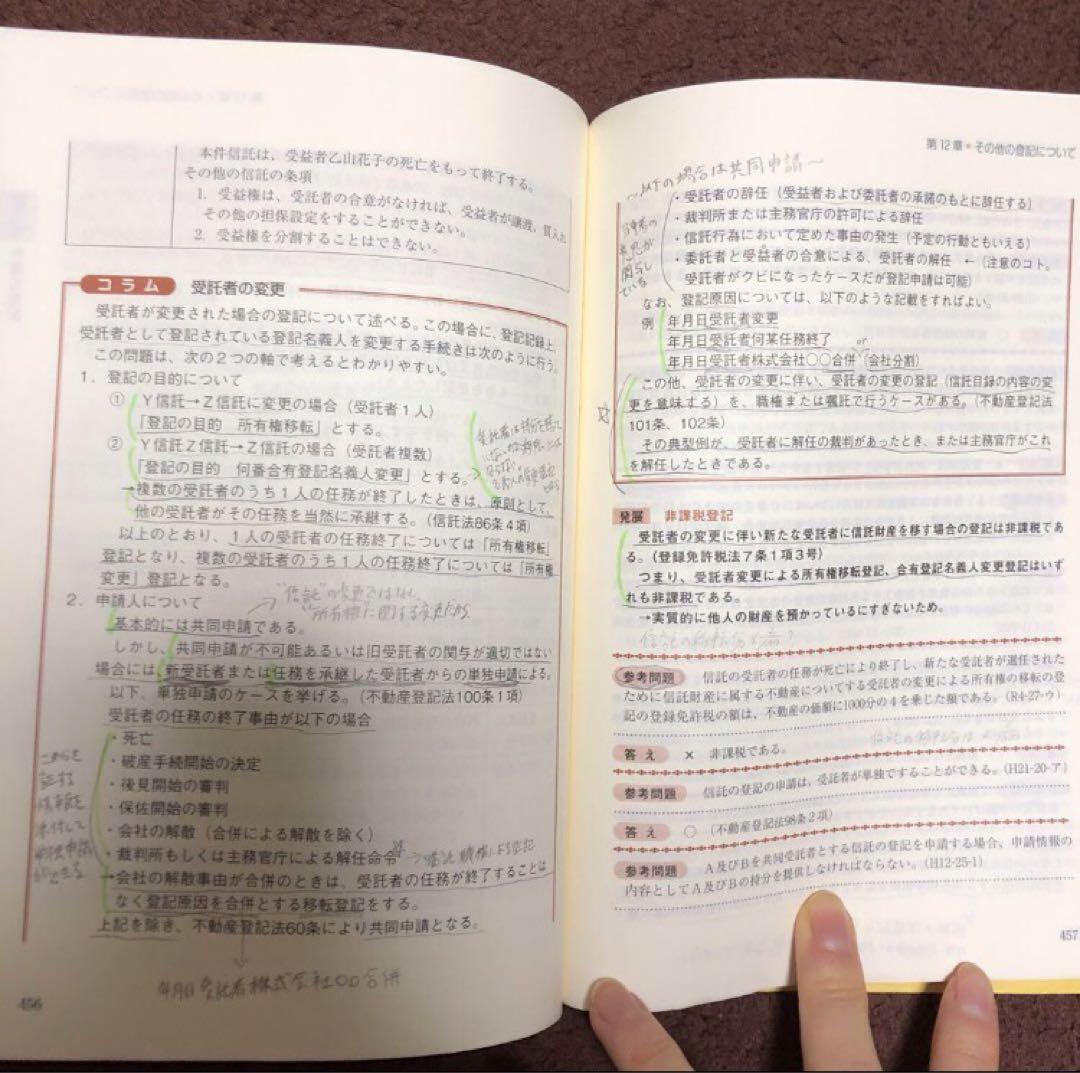 本件信託は、受益者乙山花子の死亡をもって終了する。
その他の信託の条項
1. 受益権は、受託者の合意がなければ、受益者が譲渡、質入れ
その他の担保設定をすることができない。
2. 受益権を分割することはできない。
コラム 受託者の変更
受託者が変更された場合の登記について述べる。この場合に、登記記録上、
受託者として登記されている登記名義人を変更する手続きは次のように行う。
この問題は、次の2つの軸で考えるとわかりやすい。
1. 登記の目的について
① Y信託→Z信託に変更の場合（受託者1人）
「登記の目的 所有権移転」とする。
② Y信託Z信託→Z信託の場合（受託者複数）
「登記の目的 何番合有登記名義人変更」とする。
→複数の受託者のうち1人の任務が終了したときは、原則として、
他の受託者がその任務を当然に承継する。（信託法86条4項）
以上のとおり、1人の受託者の任務終了については「所有権移転」
登記となり、複数の受託者のうち1人の任務終了については「所有権
変更」登記となる。
"信託"の変更ではなく
"所有権に関する変更だから
2. 申請人について
基本的には共同申請である。
しかし、共同申請が不可能あるいは旧受託者の関与が適切ではない
場合には、新受託者または任務を承継した受託者からの単独申請による。
以下、単独申請のケースを挙げる。（不動産登記法100条1項）
受託者の任務の終了事由が以下の場合
・死亡
・破産手続開始の決定
・後見開始の審判
・保佐開始の審判
・会社の解散（合併による解散を除く）
・裁判所もしくは主務官庁による解任命令
→会社の解散事由が合併のときは、受託者の任務が終了することは
なく登記原因を合併とする移転登記をする。
上記を除き、不動産登記法60条により共同申請となる。
年月日受託者株式会社〇〇合併
456
第12章●その他の登記について
〜以下の場合は共同申請〜
・受託者の辞任（受益者および委託者の承諾のもとに辞任する）
・裁判所または主務官庁の許可による辞任
・信託行為において定めた事由の発生（予定の行動ともいえる）
・委託者と受益者の合意による、受託者の解任 ←（注意のコト。
受託者がクビになったケースだが登記申請は可能）
なお、登記原因については、以下のような記載をすればよい。
例 年月日受託者変更
年月日受託者何某任務終了
or
年月日受託者株式会社〇〇合併（会社分割）
この他、受託者の変更に伴い、受託者の変更の登記（信託目録の内容の変
更を意味する）を、職権または嘱託で行うケースがある。（不動産登記法
101条、102条）
その典型例が、受託者に解任の裁判があったとき、または主務官庁がこれ
を解任したときである。
発展 非課税登記
受託者の変更に伴い新たな受託者に信託財産を移す場合の登記は非課税であ
る。（登録免許税法7条1項3号）
つまり、受託者変更による所有権移転登記、合有登記名義人変更登記はいず
れも非課税である。
→実質的に他人の財産を預かっているにすぎないため。
参考問題 信託の受託者の任務が死亡により終了し、新たな受託者が選任された
ために信託財産に属する不動産についてする受託者の変更による所有権の移転の登
記の登録免許税の額は、不動産の価額に1000分の4を乗じた額である。（R4-27-ウ）
答え × 非課税である。
参考問題 信託の登記の申請は、受託者が単独ですることができる。（H21-20-ア）
答え ○（不動産登記法98条2項）
参考問題 A及びBを共同受託者とする信託の登記を申請する場合、申請情報の
内容としてA及びBの持分を提供しなければならない。（H12-25-1）
457